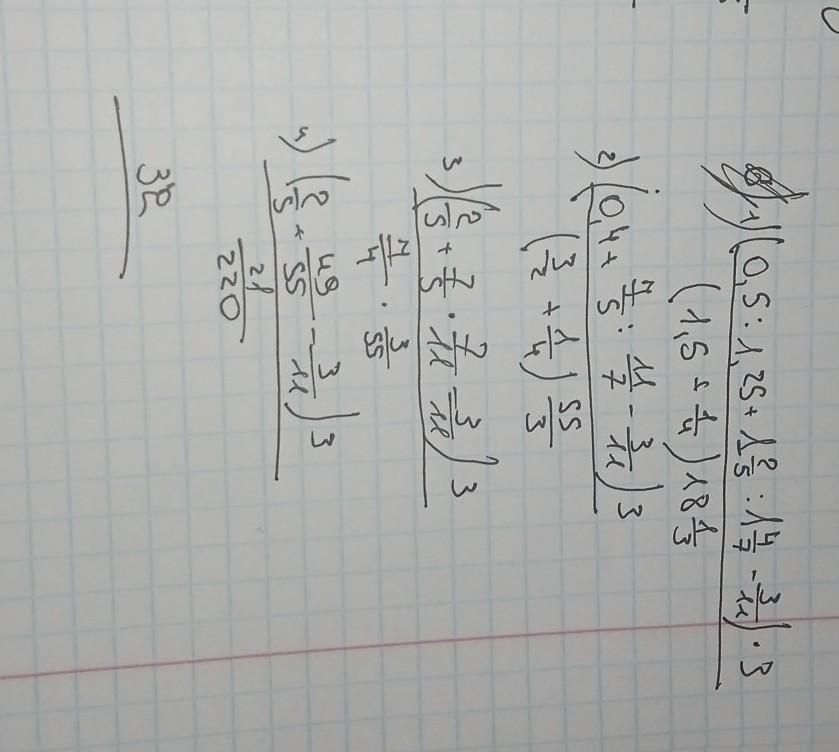 1) (0,5 : 1,25 + 1 2/5 : 1 4/7 - 3/11) · 3
(1,5 + 1/4) 18 1/3
2) (0,4 + 7/5 : 11/7 - 3/11) 3
(3/2 + 1/4) 55/3
3) (2/5 + 7/5 · 7/11 - 3/11) 3
7/4 · 3/55
4) (2/5 + 49/55 - 3/11) 3
21/220
32